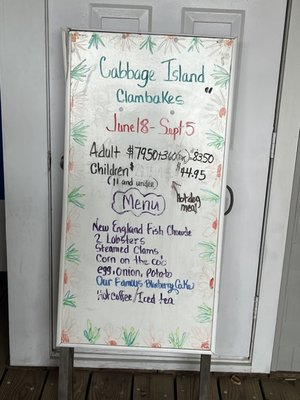 Cabbage Island
Clambakes
June 18 - Sept 5
Adult $79.50 + 3.60 = 83.50
Children $44.95
(11 and under)
hotdog
meal
Menu
New England Fish Chowder
2 Lobsters
Steamed Clams
Corn on the cob
egg, onion, potato
Our Famous Blueberry Cake
Hot Coffee/Iced tea